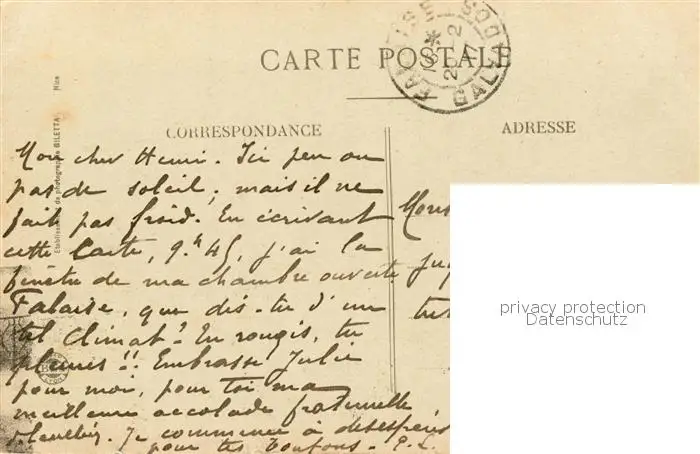 CARTE POSTALE
CORRESPONDANCE
ADRESSE
Etablissements de photographie GILETTA - Nice
GALVADOS
Mon cher Henri. Ici peu ou
pas de soleil, mais il ne
fait pas froid. En écrivant
cette Carte, 9.h 45, j'ai la
fenêtre de ma chambre ouverte
Falaise, que dis-tu d'un
tel Climat? Tu rougis, tu
pleures!! Embrasse Julie
pour moi, pour toi ma
meilleure accolade fraternelle
Je commence à désespérer
pour tes Toutous - P. L.
privacy protection
Datenschutz